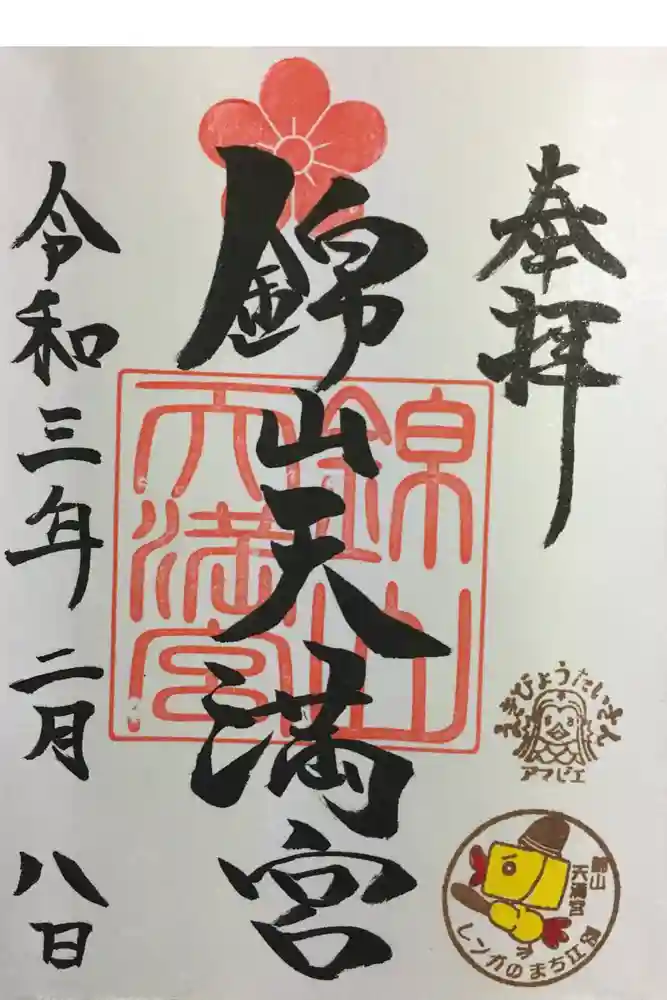 奉拝
錦山天満宮
令和三年二月八日
錦山
天満宮
えきびょうたいさん
アマビエ
錦山
天満宮
レンガのまち江別